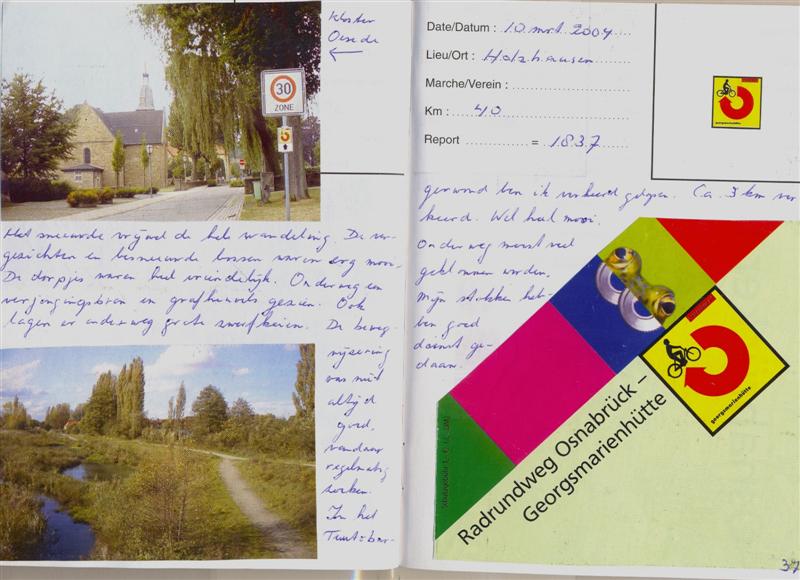 Kloster
Oesede
←
30
ZONE
Het sneeuwde vrijwel de hele wandeling. De ver-
gezichten en besneeuwde bossen waren erg mooi.
De dorpjes waren heel vriendelijk. Onderweg een
verjongingsbron en grafheuvels gezien. Ook
lagen er onderweg grote zwerfkeien. De beweg-
wijzering
was niet
altijd
goed.
vandaar
regelmatig
zoeken.
In het
Teutobur-
Date/Datum : 10 mrt. 2004
Lieu/Ort : Holzhausen
Marche/Verein :
Km : 40
Report = 1837
georgsmarienhütte
gerwoud ben ik verkeerd gelopen. Ca. 3 km ver
keerd. Wel heel mooi.
Onderweg moest veel
geklommen worden.
Mijn stokken heb-
ben goed
dienst ge-
daan.
georgsmarienhütte
Radrundweg Osnabrück –
Georgsmarienhütte
37